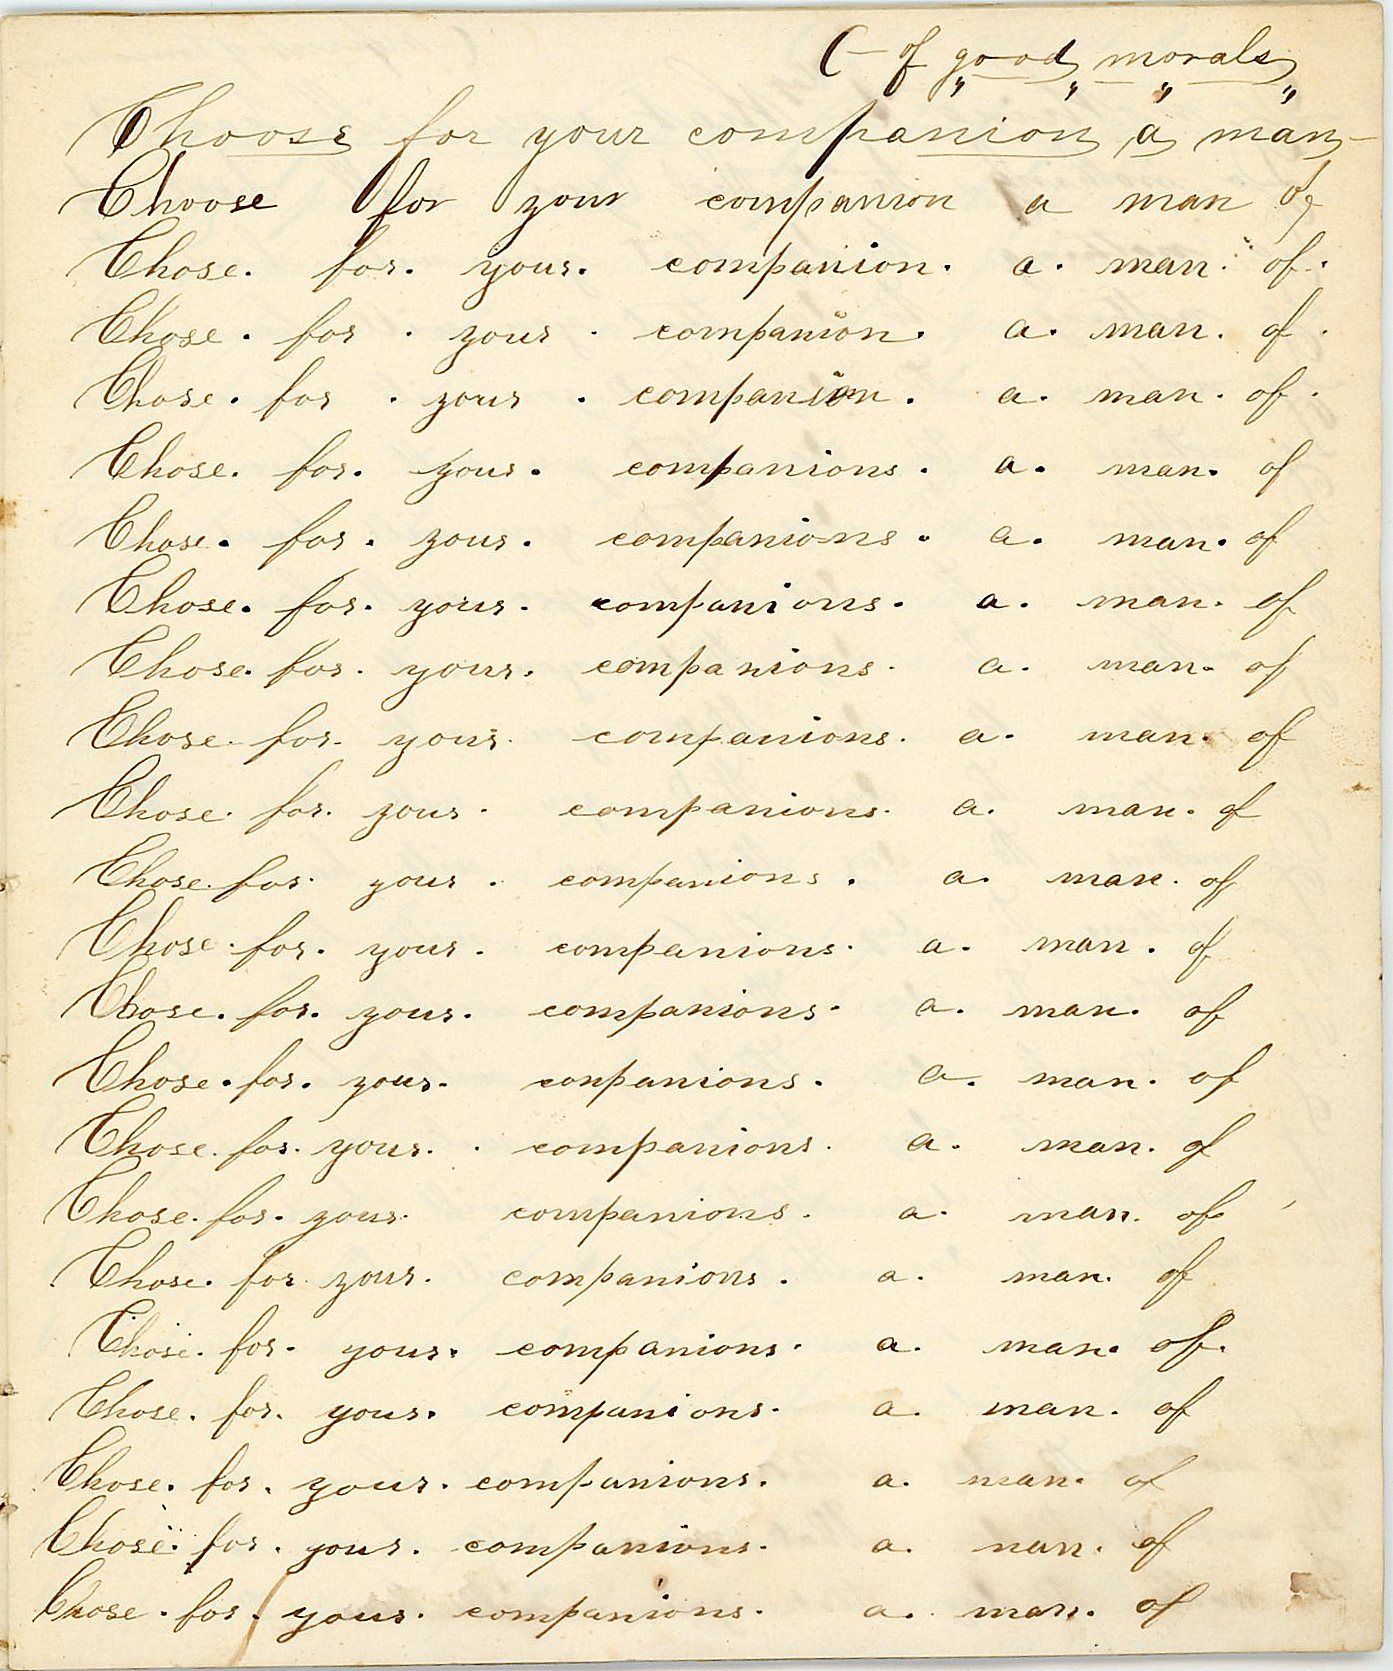 (- of good morals
Choose for your companion a man-
Choose for your companion a man of
Chose. for. your. companion. a. man. of.
Chose. for . your . companion. a. man. of.
Chose. for . your . companion. a. man. of.
Chose. for. your. companions. a. man. of
Chose. for. your. companions. a. man. of
Chose. for. your. companions. a. man. of
Chose. for. your. companions. a. man. of
Chose. for. your. companions. a. man. of
Chose. for. your. companions. a. man. of
Chose. for. your. companions. a. man. of
Chose. for. your. companions. a. man. of
Chose. for. your. companions. a. man. of
Chose. for. your. conpanions. a. man. of
Chose. for. your. . companions. a. man. of
Chose. for. your. companions. a. man. of
Chose. for. your. companions. a. man. of
Chose. for. your. companions. a. man. of.
Chose. for. your. companions. a. man. of
Chose. for. your. companions. a. man. of
Chose. for. your. companions. a. nan. of
Chose. for. your. companions. a. man. of